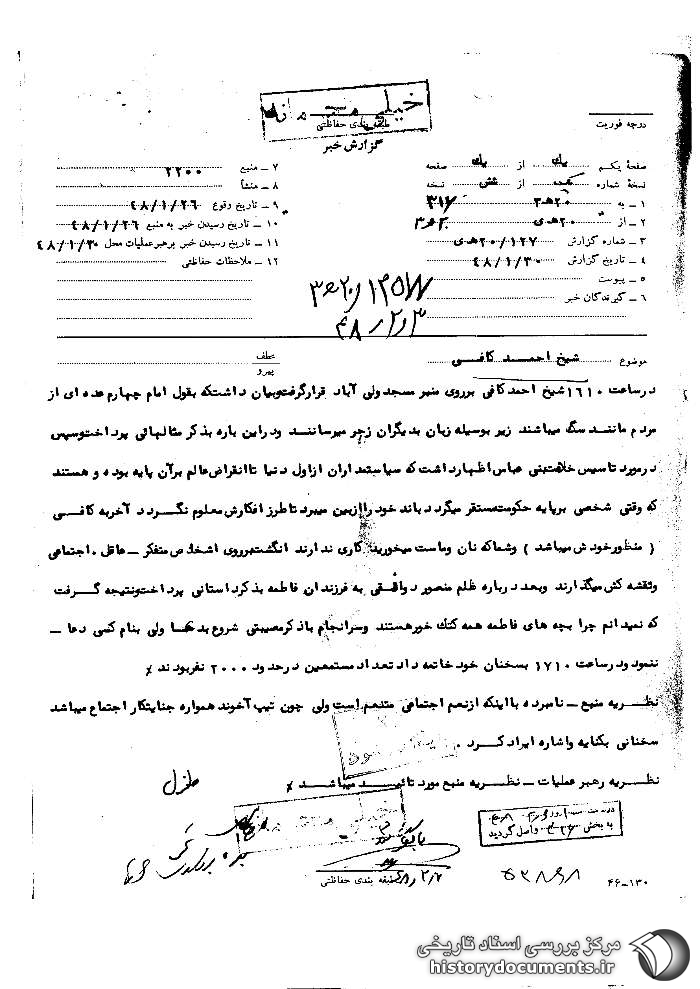 خیلی محرمانه
طبقه بندی حفاظتی
گزارش خبر
درجه فوریت
صفحهٔ یکم یک از یک صفحه
نسخهٔ شماره از شش نسخه
۱ ـ به ۲۰هـ۳ ۳۱۶
۲ ـ از ۲۰هـ‍ی
۳ ـ شماره گزارش ۲۰/۱۲۷هـ‍ی
۴ ـ تاریخ گزارش ۴۸/۱/۳۰
۵ ـ پیوست
۶ ـ گیرندگان خبر
۷ ـ منبع ۲۲۰۰
۸ ـ منشأ
۹ ـ تاریخ وقوع ۴۸/۱/۲۶
۱۰ ـ تاریخ رسیدن خبر به منبع ۴۸/۱/۲۶
۱۱ ـ تاریخ رسیدن خبر برهبر عملیات محل ۴۸/۱/۳۰
۱۲ ـ ملاحظات حفاظتی
موضوع شیخ احمد کافی
عطف
پیرو
در ساعت ۱۶۱۰ شیخ احمد کافی بر روی منبر مسجد ولی آباد قرار گرفت و بیان داشت که بقول امام چهارم عده ای از
مردم مانند سگ میباشند زیر بوسیله زبان بدیگران زجر میرسانند و در این باره بذکر مثالهائی پرداخت و سپس
در مورد تاسیس خلافت بنی عباس اظهار داشت که سیاستمداران از اول دنیا تا انقراض عالم بر آن پایه بوده و هستند
که وقتی شخصی بر پایه حکومت مستقر میگردد باند خود را از بین میبرد تا طرز افکارش معلوم نگردد آخر به کافی
( منظور خودش میباشد ) و شما که نان و ماست میخورید کاری ندارند انگشت بر روی اشخاص متفکر ـ عاقل ـ اجتماعی
و نقشه کش میگذارند و بعد درباره ظلم منصور دوانقی به فرزندان فاطمه بذکر داستانی پرداخت و نتیجه گرفت
که نمیدانم چرا بچه های فاطمه همه کتک خور هستند و سرانجام با ذکر مصیبتی شروع بدعا ولی بنام کسی دعا ـ
ننمود و در ساعت ۱۷۱۰ بسخنان خود خاتمه داد تعداد مستمعین در حدود ۲۰۰۰ نفر بودند ٪
نظریه منبع ـ نامبرده با اینکه از نعم اجتماعی متنعم است ولی چون تیپ آخوند همواره جنایتکار اجتماع میباشد
سخنانی بکنایه و اشاره ایراد کرد .
نظریه رهبر عملیات ـ نظریه منبع مورد تائید میباشد ٪
به بخش ۳۱۶ واصل گردید
طبقه بندی حفاظتی
۴۶-۱۳۰
مرکز بررسی اسناد تاریخی
historydocuments.ir